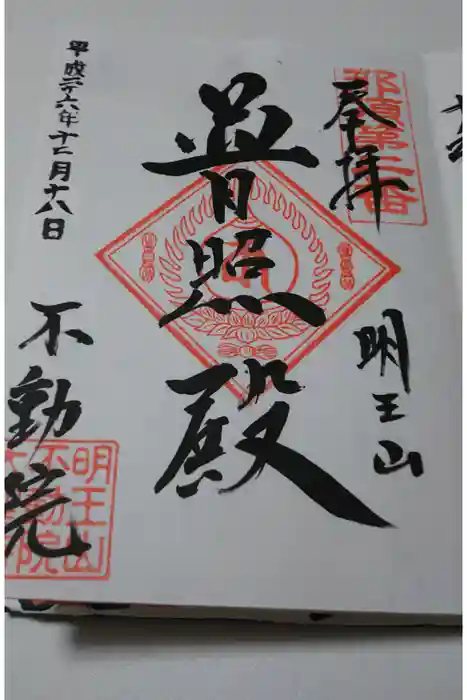 奉拝
明王山
普照殿
平成二十六年十二月十八日
不動院
明王山
不動院